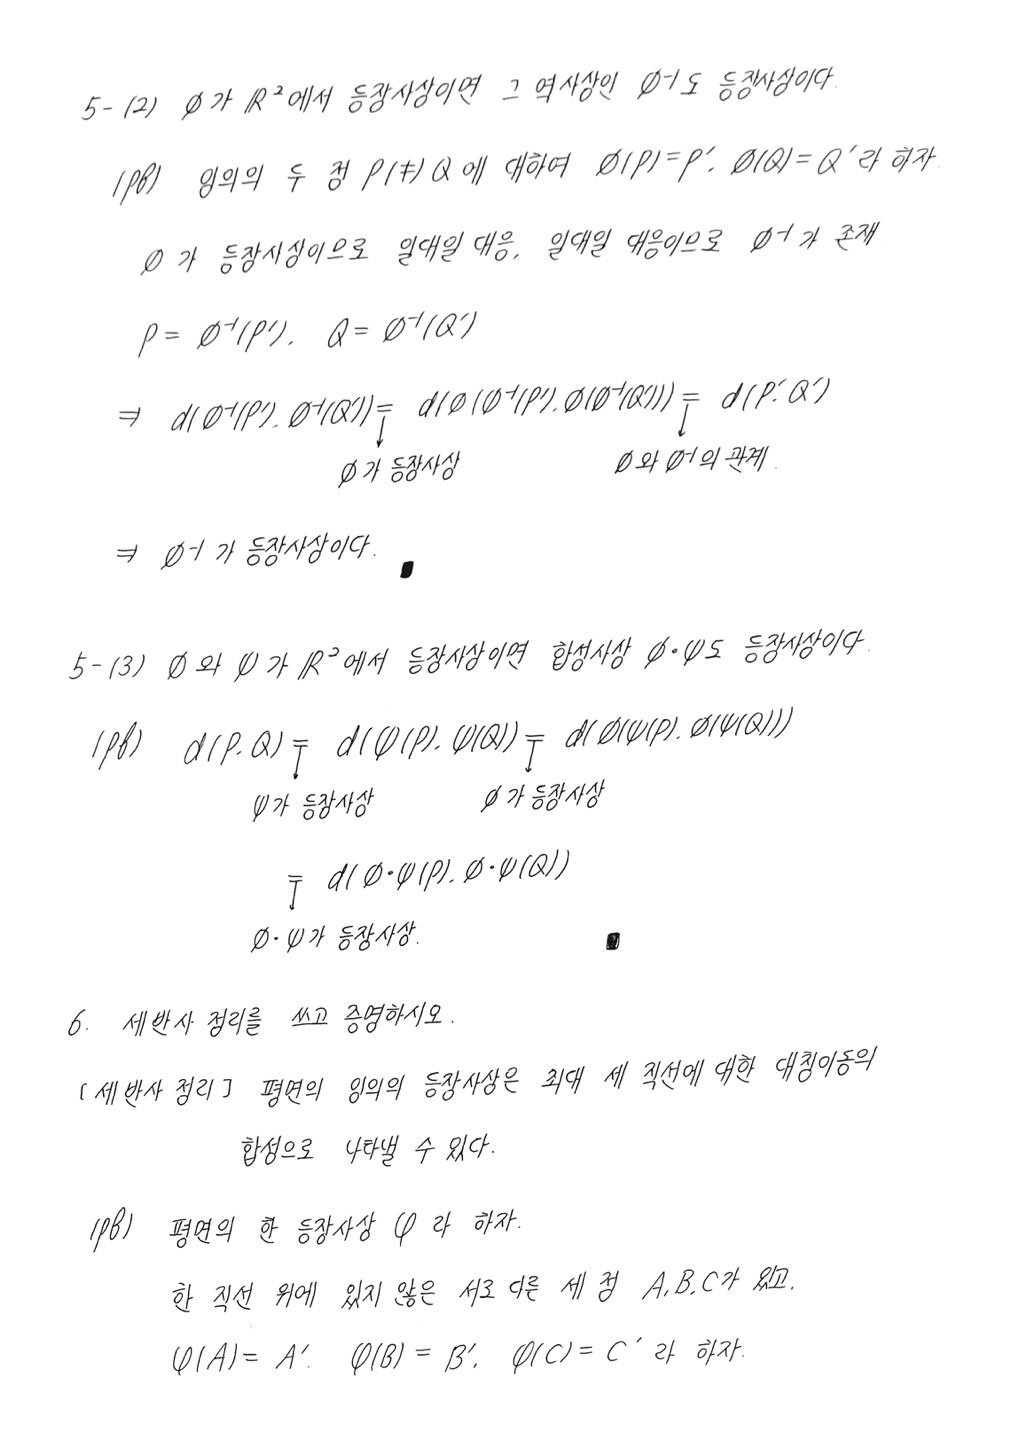 5-(2) ∅가 ℝ²에서 등장사상이면 그 역사상인 ∅⁻¹도 등장사상이다.
(pf) 임의의 두 점 P(≠)Q에 대하여 ∅(P)=P′, ∅(Q)=Q′라 하자.
∅가 등장사상이므로 일대일 대응, 일대일 대응이므로 ∅⁻¹가 존재
P = ∅⁻¹(P′), Q = ∅⁻¹(Q′)
⇒ d(∅⁻¹(P′), ∅⁻¹(Q′)) = d(∅(∅⁻¹(P′), ∅(∅⁻¹(Q′))) = d(P′, Q′)
∅가 등장사상 ∅와 ∅⁻¹의 관계.
⇒ ∅⁻¹가 등장사상이다.
5-(3) ∅와 ψ가 ℝ²에서 등장사상이면 합성사상 ∅·ψ도 등장사상이다.
(pf) d(P, Q) = d(ψ(P), ψ(Q)) = d(∅(ψ(P), ∅(ψ(Q)))
ψ가 등장사상 ∅가 등장사상
= d(∅·ψ(P), ∅·ψ(Q))
∅·ψ가 등장사상.
6. 세반사 정리를 쓰고 증명하시오.
[세반사 정리] 평면의 임의의 등장사상은 최대 세 직선에 대한 대칭이동의
합성으로 나타낼 수 있다.
(pf) 평면의 한 등장사상 φ라 하자.
한 직선 위에 있지 않은 서로 다른 세 점 A, B, C가 있고,
φ(A) = A′, φ(B) = B′, φ(C) = C′라 하자.